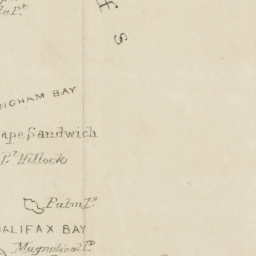 S
NGHAM BAY
ape Sandwich
P.t Hillock
Palm I.s
ALIFAX BAY
Magnetical I.d